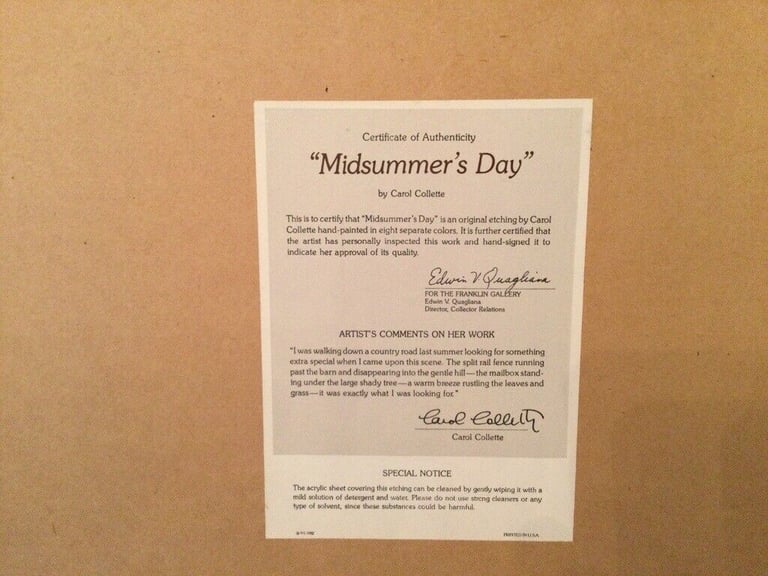 Certificate of Authenticity
“Midsummer’s Day”
by Carol Collette
This is to certify that “Midsummer’s Day” is an original etching by Carol
Collette hand-painted in eight separate colors. It is further certified that
the artist has personally inspected this work and hand-signed it to
indicate her approval of its quality.
Edwin V Quagliana
FOR THE FRANKLIN GALLERY
Edwin V. Quagliana
Director, Collector Relations
ARTIST’S COMMENTS ON HER WORK
“I was walking down a country road last summer looking for something
extra special when I came upon this scene. The split rail fence running
past the barn and disappearing into the gentle hill—the mailbox stand-
ing under the large shady tree—a warm breeze rustling the leaves and
grass—it was exactly what I was looking for.”
Carol Collette
Carol Collette
SPECIAL NOTICE
The acrylic sheet covering this etching can be cleaned by gently wiping it with a
mild solution of detergent and water. Please do not use strong cleaners or any
type of solvent, since these substances could be harmful.
PRINTED IN U.S.A.